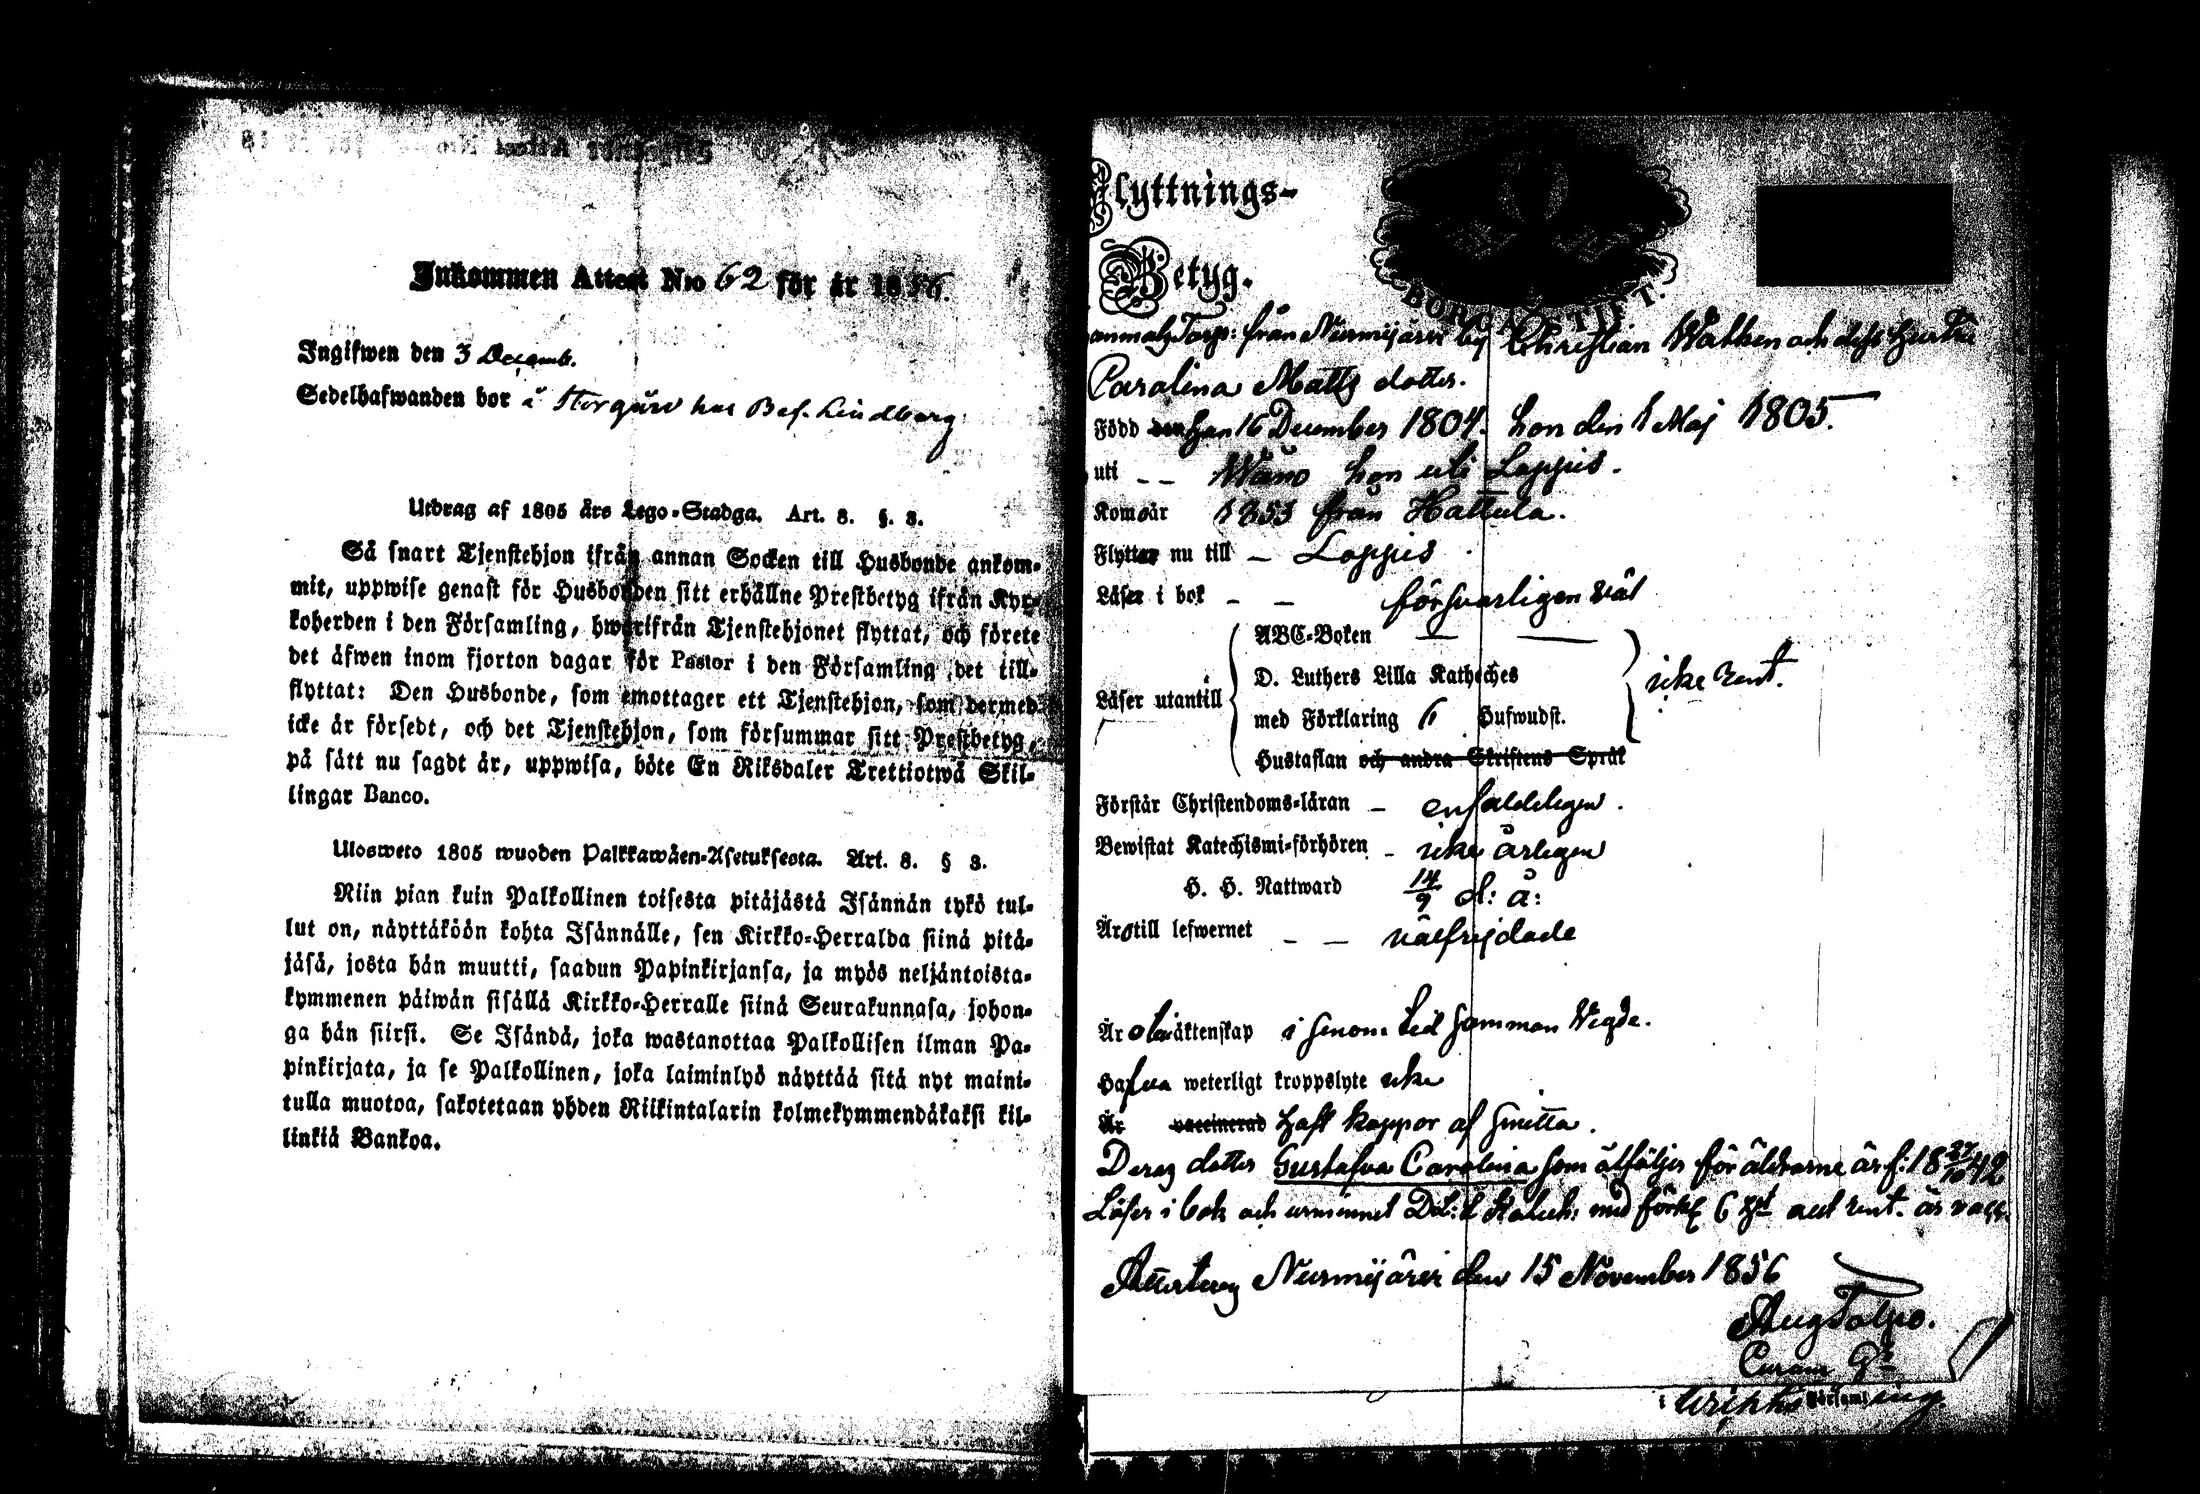 Inkommen Attest N:o 62 för år 1856.
Ingifwen den 3 Decemb.
Sedelhafwanden bor å Storgård hos Bef. Lindberg
Utdrag af 1805 års Lego-Stadga. Art. 8. §. 8.
Så snart Tjenstehjon ifrån annan Socken till Husbonde ankom-
mit, uppwise genast för Husbonden sitt erhållne Prestbetyg ifrån Kyr-
koherden i den Församling, hwarifrån Tjenstehjonet flyttat, och förete
det äfwen inom fjorton dagar för Pastor i den Församling det till-
flyttat: Den Husbonde, som emottager ett Tjenstehjon, som dermed
icke är försedt, och det Tjenstehjon, som försummar sitt Prestbetyg,
på sätt nu sagdt är, uppwisa, böte En Riksdaler Trettiotwå Skil-
lingar Banco.
Ulosweto 1805 wuoden Palkkawäen-Asetuksesta. Art. 8. § 8.
Niin pian kuin Palkollinen toisesta pitäjästä Isännän tykö tul-
lut on, näyttäköön kohta Isännälle, sen Kirkko-Herralda siinä pitä-
jäsä, josta hän muutti, saadun Papinkirjansa, ja myös neljäntoista-
kymmenen päiwän sisällä Kirkko-Herralle siinä Seurakunnasa, johon-
ga hän siirsi. Se Isändä, joka wastanottaa Palkollisen ilman Pa-
pinkirjata, ja se Palkollinen, joka laiminlyö näyttää sitä nyt maini-
tulla muotoa, sakotetaan yhden Riikintalarin kolmekymmendäkaksi kil-
linkiä Bankoa.
Flyttnings-
Betyg.
BORGÅ STIFT.
Torp: från Nurmijärvi by Christian Wathen och dess hustru
Carolina Matts dotter.
Född den han 16 December 1804. hon den 1 Maj 1805.
uti -- Wånå hon uti Loppis.
Kom år 1853 från Hattula.
Flyttar nu till - Loppis
Läser i bok - - försvarligen väl
ABC-Boken
D. Luthers Lilla Kateches
Läser utantill
med Förklaring 6 Hufwudst.
icke rent.
Hustaflan och andra Skriftens Språk
Förstår Christendoms-läran - enfaldeligen.
Bewistat Katechismi-förhören - icke årligen
H. H. Nattward 14/9 d: å:
Äro till lefwernet - - välfrejdade
Är o i äktenskap i sinom tid samman Vigde.
Hafva weterligt kroppslyte icke
Är vaccinerad haft koppor af smitta.
Deras dotter Gustafva Carolina som åtföljer för äldrarne är f: 18 27/10 42
Läser i bok och urminnet D:L:L Katech: med förkl 6 Hst allt rent. är vacc.
Attesterar Nurmijärvi den 15 November 1856
Aug Talpo.
i Församling